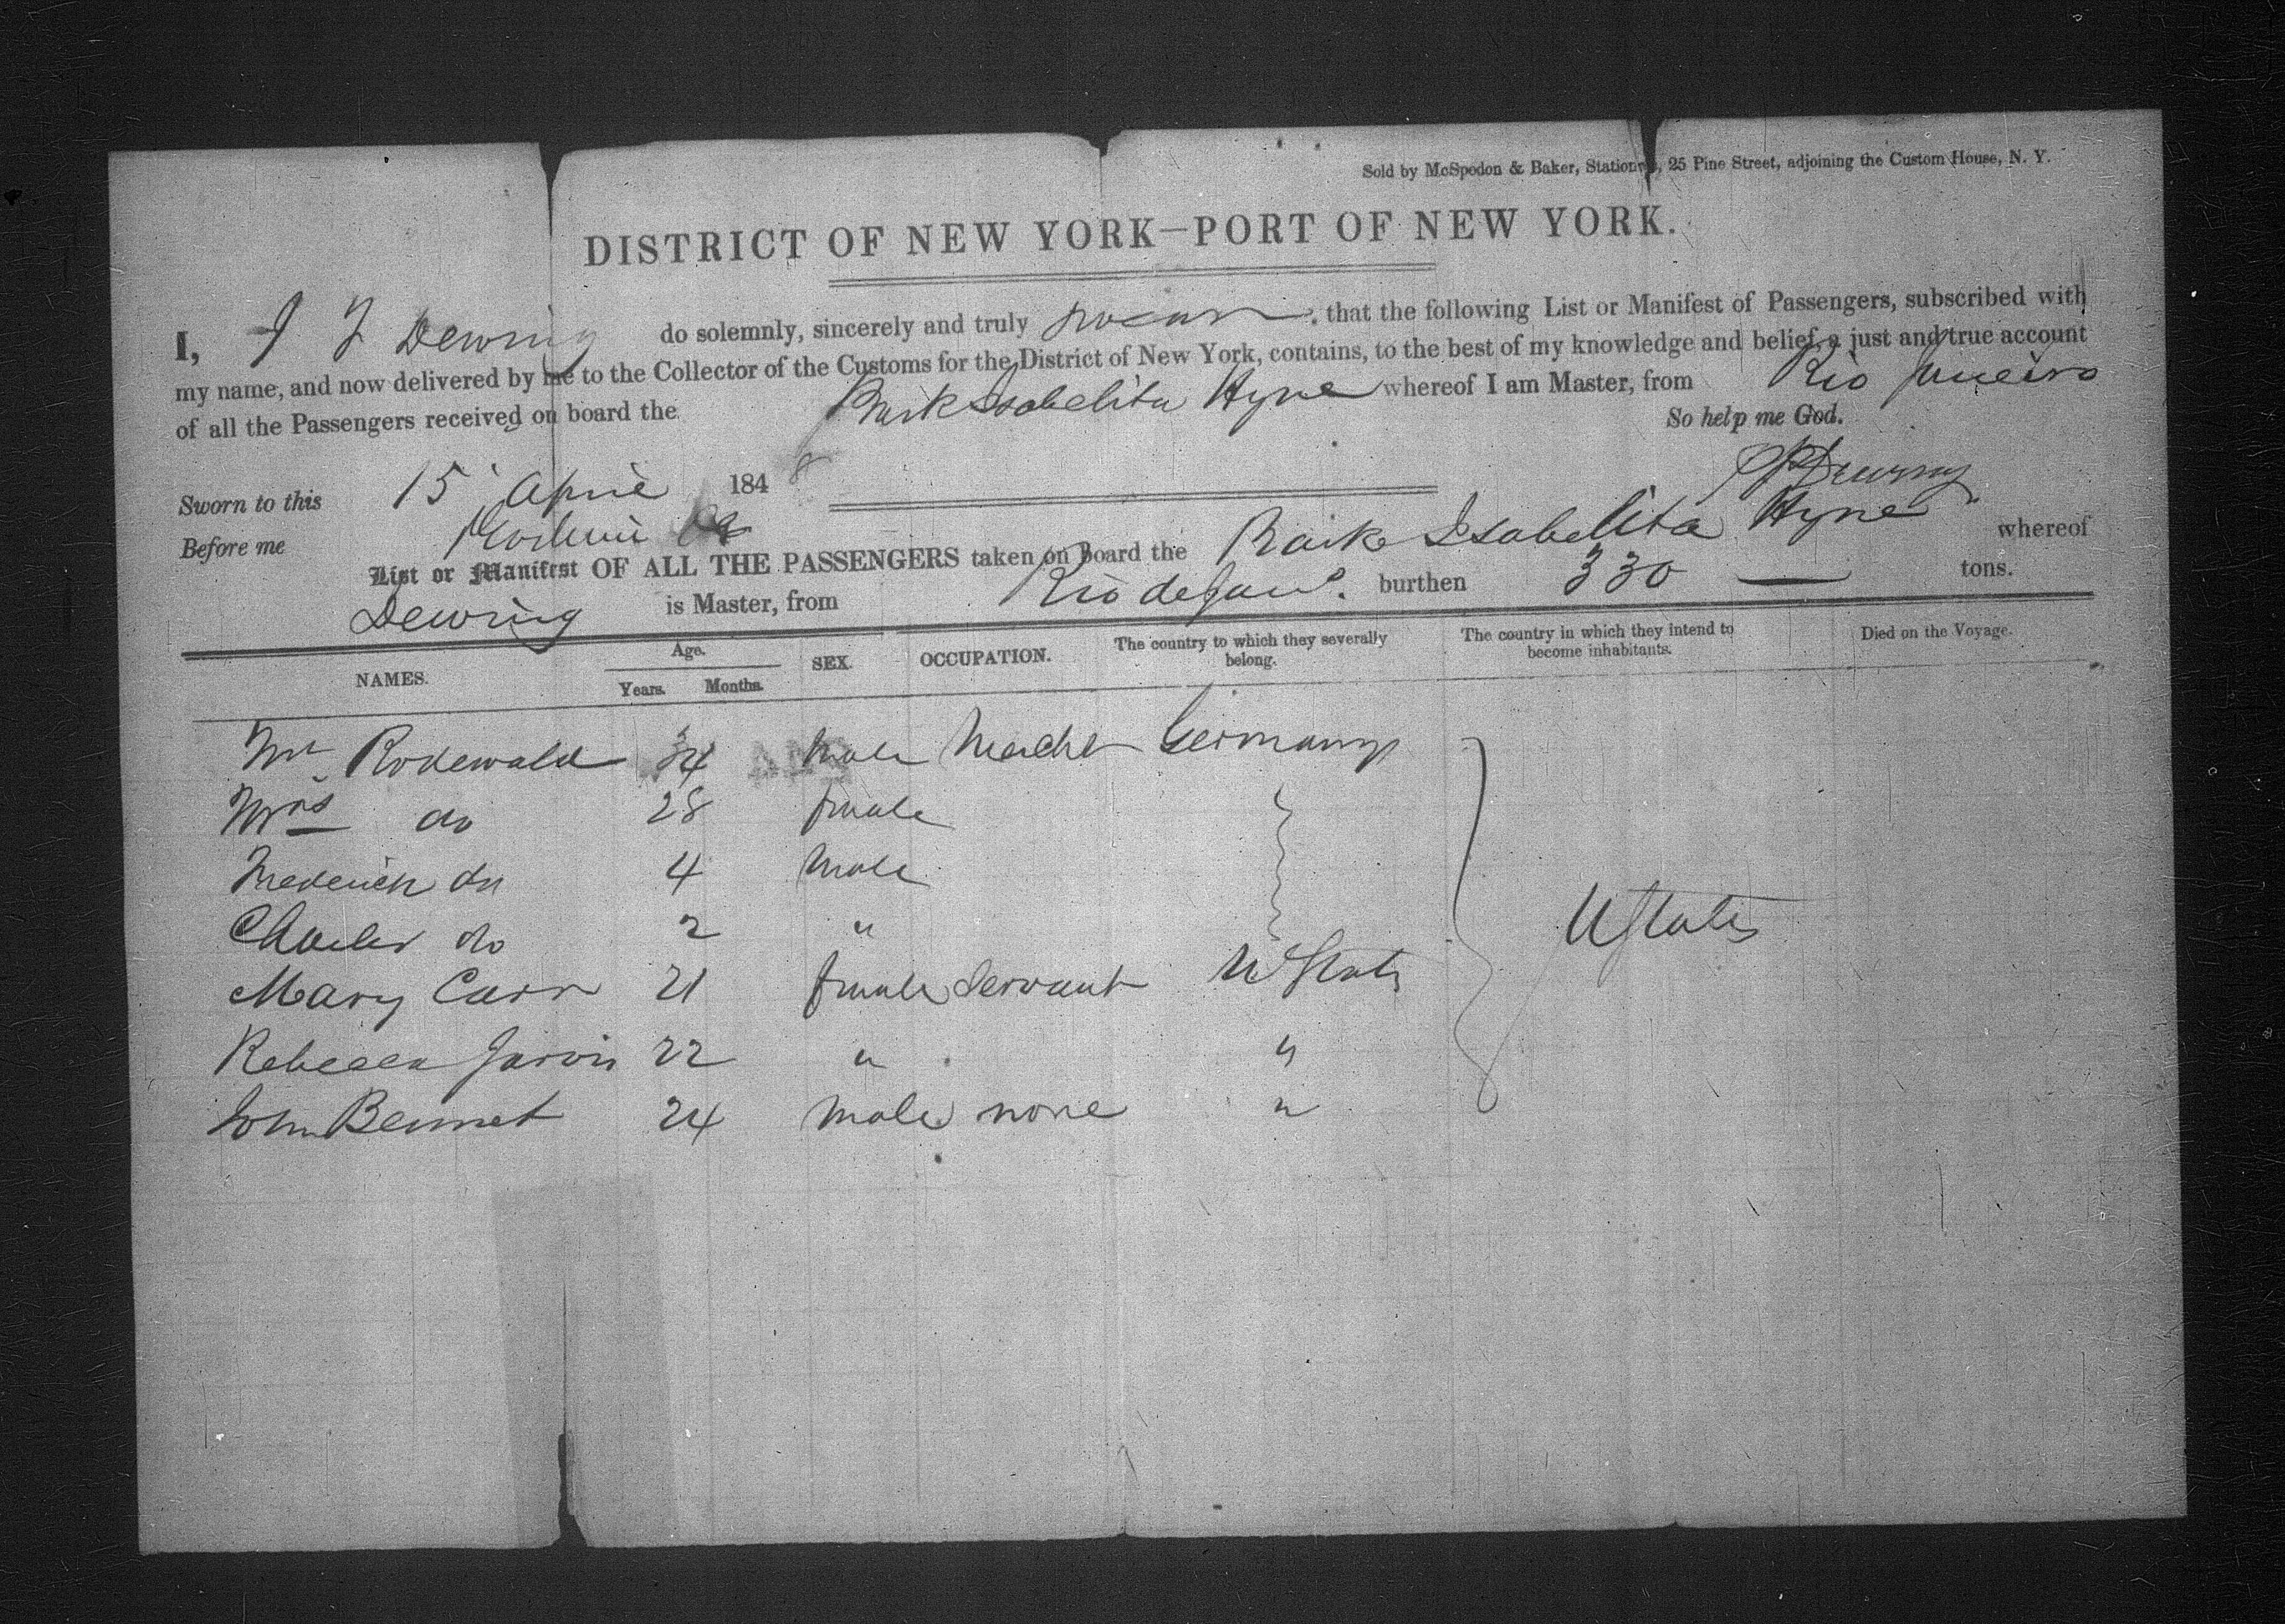 Sold by McSpedon & Baker, Stationers, 25 Pine Street, adjoining the Custom House, N. Y.
DISTRICT OF NEW YORK—PORT OF NEW YORK.
I, J F Dewing do solemnly, sincerely and truly swear, that the following List or Manifest of Passengers, subscribed with
my name, and now delivered by me to the Collector of the Customs for the District of New York, contains, to the best of my knowledge and belief, a just and true account
of all the Passengers received on board the Bark Isabelita Hyne whereof I am Master, from Rio Janeiro
So help me God.
Sworn to this 15 April 1848
Dewing
Before me
List or Manifest OF ALL THE PASSENGERS taken on Board the Bark Isabelita Hyne whereof
Dewing is Master, from Rio de Jano. burthen 330 — tons.
NAMES. Age. Years. Months. SEX. OCCUPATION. The country to which they severally belong. The country in which they intend to become inhabitants. Died on the Voyage.
Mr Rodewald 34 Male Mercht Germany
Mrs do 28 female
Frederick do 4 Male
Charles do 2 "
Mary Carr 21 female Servant U States
U States
Rebecca Jarvis 22 " "
John Bennet 24 Male none "